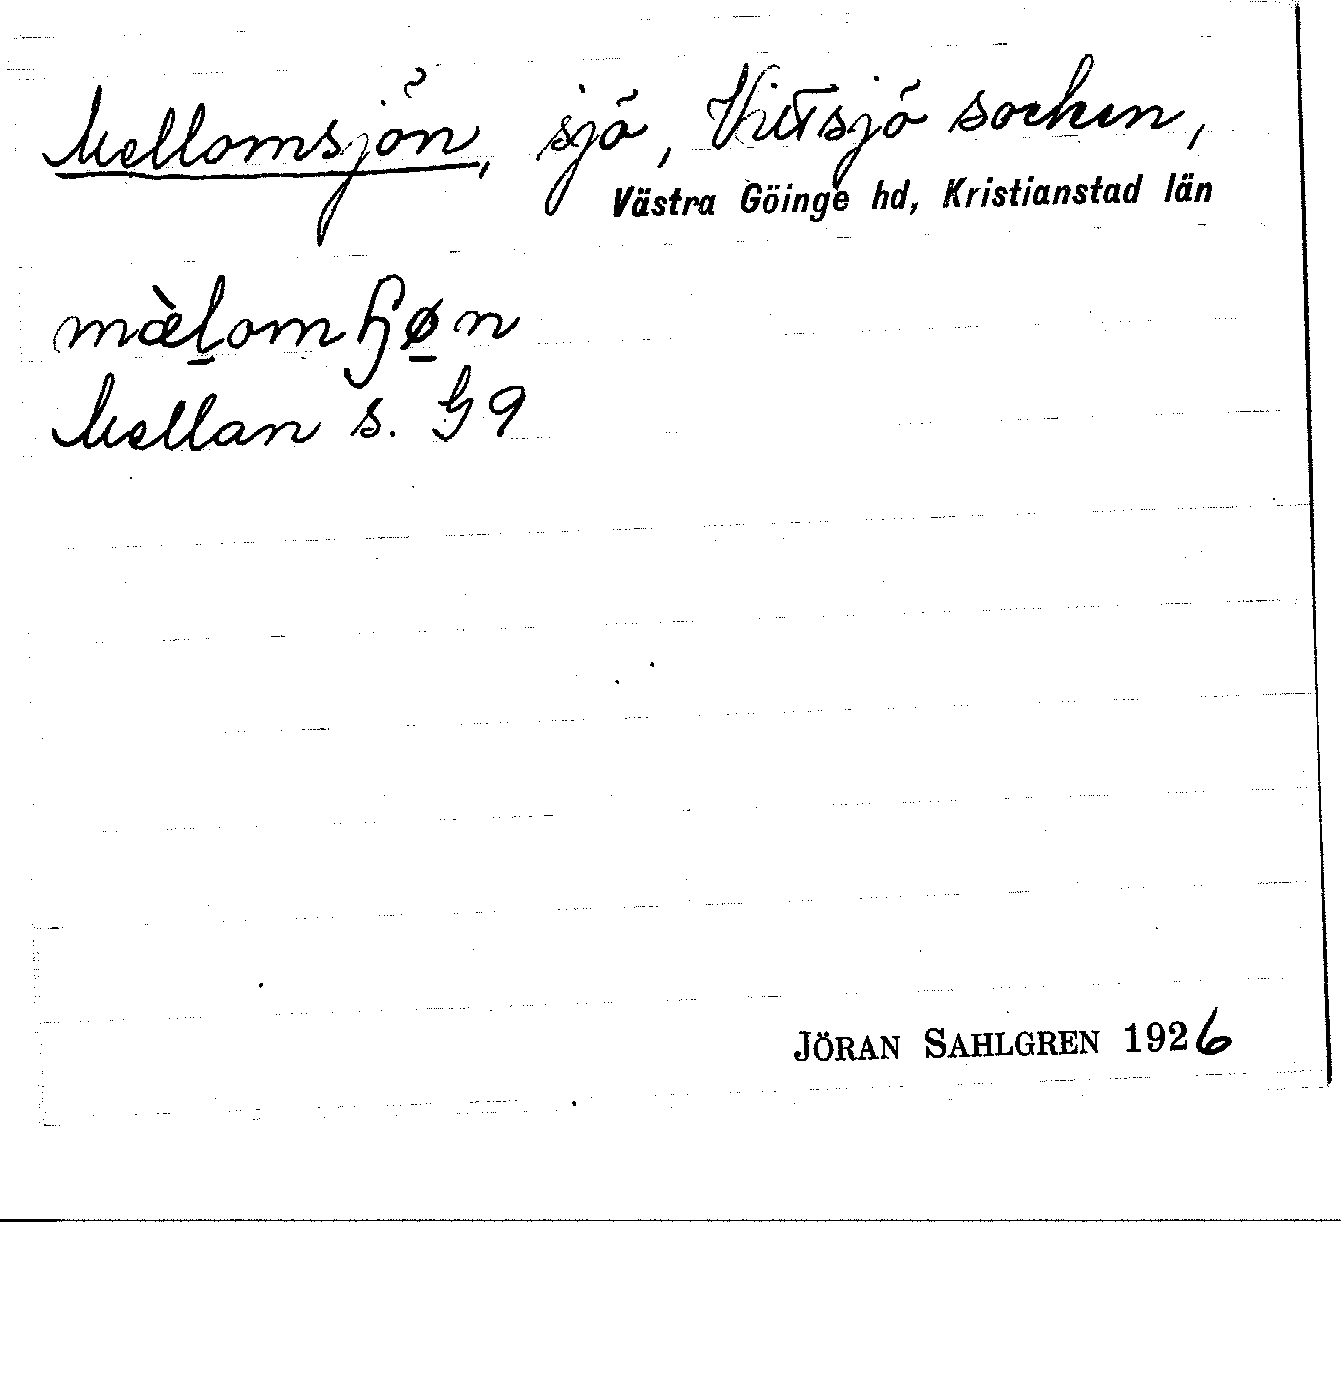 Mellomsjön, sjö, Vittsjö socken,
Västra Göinge hd, Kristianstad län
mæ̀l̲omɧø̲n
Mellan s. G9
JÖRAN SAHLGREN 1926